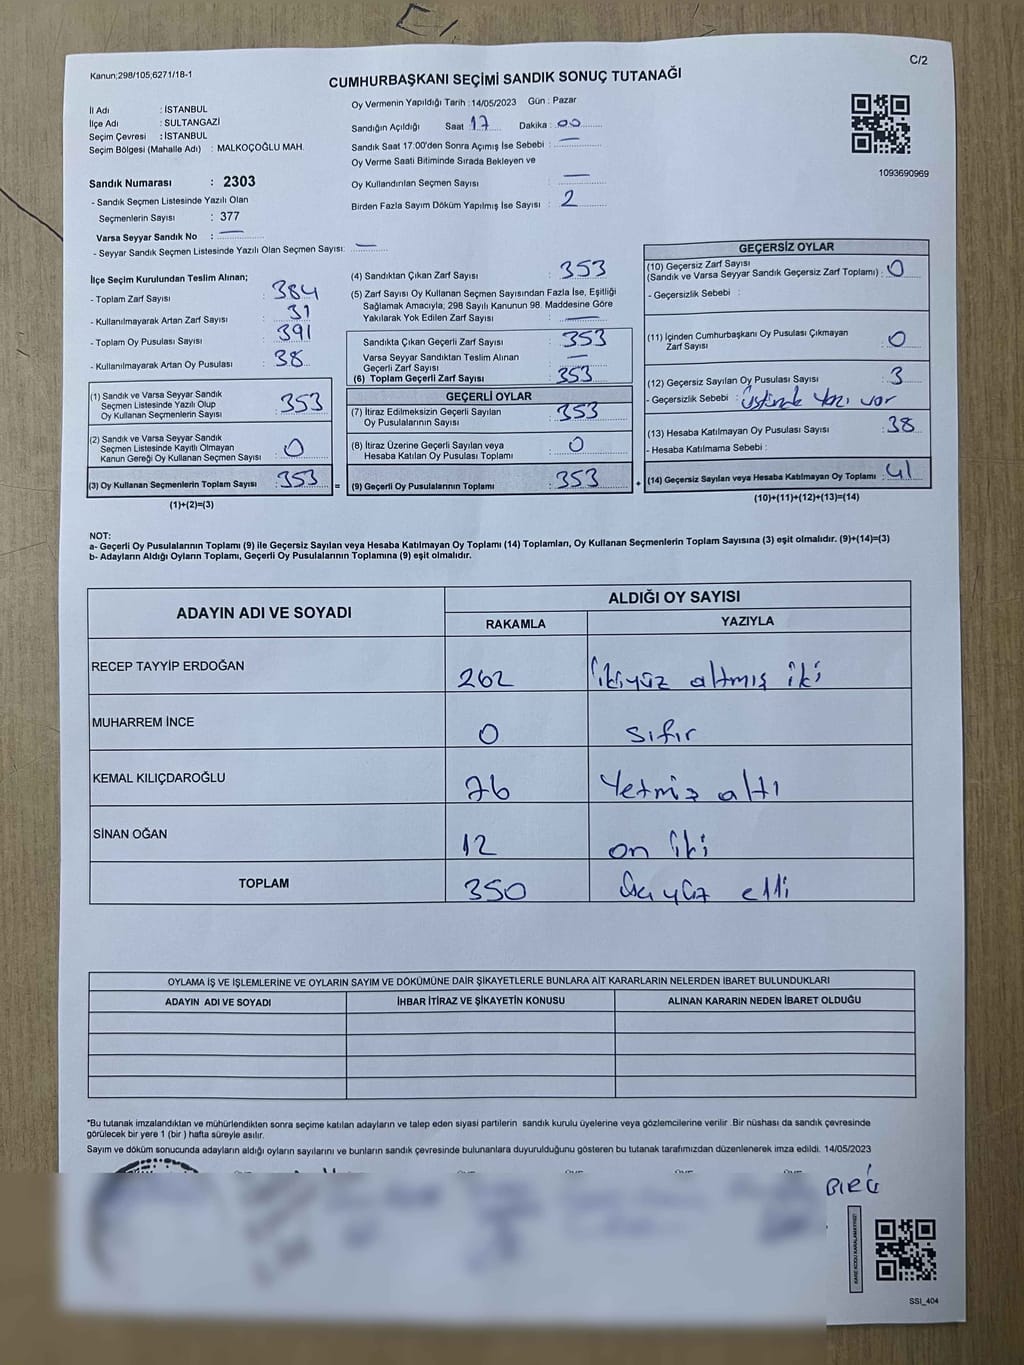 C/2
Kanun;298/105;6271/18-1
CUMHURBAŞKANI SEÇİMİ SANDIK SONUÇ TUTANAĞI
İl Adı : İSTANBUL
İlçe Adı : SULTANGAZİ
Seçim Çevresi : İSTANBUL
Seçim Bölgesi (Mahalle Adı) : MALKOÇOĞLU MAH.
Oy Vermenin Yapıldığı Tarih :14/05/2023 Gün : Pazar
Sandığın Açıldığı Saat 17 Dakika : 00
Sandık Saat 17.00'den Sonra Açımış İse Sebebi : —
Oy Verme Saati Bitiminde Sırada Bekleyen ve
Oy Kullandırılan Seçmen Sayısı : —
Birden Fazla Sayım Döküm Yapılmış İse Sayısı : 2
1093690969
Sandık Numarası : 2303
- Sandık Seçmen Listesinde Yazılı Olan
Seçmenlerin Sayısı : 377
Varsa Seyyar Sandık No : —
- Seyyar Sandık Seçmen Listesinde Yazılı Olan Seçmen Sayısı: —
İlçe Seçim Kurulundan Teslim Alınan;
- Toplam Zarf Sayısı : 384
- Kullanılmayarak Artan Zarf Sayısı : 31
- Toplam Oy Pusulası Sayısı : 391
- Kullanılmayarak Artan Oy Pusulası : 38
(1) Sandık ve Varsa Seyyar Sandık
Seçmen Listesinde Yazılı Olup
Oy Kullanan Seçmenlerin Sayısı : 353
(2) Sandık ve Varsa Seyyar Sandık
Seçmen Listesinde Kayıtlı Olmayan
Kanun Gereği Oy Kullanan Seçmen Sayısı : 0
(3) Oy Kullanan Seçmenlerin Toplam Sayısı : 353 =
(1)+(2)=(3)
(4) Sandıktan Çıkan Zarf Sayısı : 353
(5) Zarf Sayısı Oy Kullanan Seçmen Sayısından Fazla İse, Eşitliği
Sağlamak Amacıyla; 298 Sayılı Kanunun 98. Maddesine Göre
Yakılarak Yok Edilen Zarf Sayısı : —
Sandıkta Çıkan Geçerli Zarf Sayısı : 353
Varsa Seyyar Sandıktan Teslim Alınan
Geçerli Zarf Sayısı : —
(6) Toplam Geçerli Zarf Sayısı : 353
GEÇERLİ OYLAR
(7) İtiraz Edilmeksizin Geçerli Sayılan
Oy Pusulalarının Sayısı : 353
(8) İtiraz Üzerine Geçerli Sayılan veya
Hesaba Katılan Oy Pusulası Toplamı : 0
(9) Geçerli Oy Pusulalarının Toplamı : 353 +
GEÇERSİZ OYLAR
(10) Geçersiz Zarf Sayısı
(Sandık ve Varsa Seyyar Sandık Geçersiz Zarf Toplamı) : 0
- Geçersizlik Sebebi :
(11) İçinden Cumhurbaşkanı Oy Pusulası Çıkmayan
Zarf Sayısı : 0
(12) Geçersiz Sayılan Oy Pusulası Sayısı : 3
- Geçersizlik Sebebi : Üstünde Yazı var
(13) Hesaba Katılmayan Oy Pusulası Sayısı : 38
- Hesaba Katılmama Sebebi :
(14) Geçersiz Sayılan veya Hesaba Katılmayan Oy Toplamı : 41
(10)+(11)+(12)+(13)=(14)
NOT:
a- Geçerli Oy Pusulalarının Toplamı (9) ile Geçersiz Sayılan veya Hesaba Katılmayan Oy Toplamı (14) Toplamları, Oy Kullanan Seçmenlerin Toplam Sayısına (3) eşit olmalıdır. (9)+(14)=(3)
b- Adayların Aldığı Oyların Toplamı, Geçerli Oy Pusulalarının Toplamına (9) eşit olmalıdır.
ADAYIN ADI VE SOYADI ALDIĞI OY SAYISI
RAKAMLA YAZIYLA
RECEP TAYYİP ERDOĞAN 262 ikiyüz altmış iki
MUHARREM İNCE 0 sıfır
KEMAL KILIÇDAROĞLU 76 Yetmiş altı
SİNAN OĞAN 12 on iki
TOPLAM 350 üçyüz elli
OYLAMA İŞ VE İŞLEMLERİNE VE OYLARIN SAYIM VE DÖKÜMÜNE DAİR ŞİKAYETLERLE BUNLARA AİT KARARLARIN NELERDEN İBARET BULUNDUKLARI
ADAYIN ADI VE SOYADI İHBAR İTİRAZ VE ŞİKAYETİN KONUSU ALINAN KARARIN NEDEN İBARET OLDUĞU
*Bu tutanak imzalandıktan ve mühürlendikten sonra seçime katılan adayların ve talep eden siyasi partilerin sandık kurulu üyelerine veya gözlemcilerine verilir .Bir nüshası da sandık çevresinde
görülecek bir yere 1 (bir ) hafta süreyle asılır.
Sayım ve döküm sonucunda adayların aldığı oyların sayılarını ve bunların sandık çevresinde bulunanlara duyurulduğunu gösteren bu tutanak tarafımızdan düzenlenerek imza edildi. 14/05/2023
SSI_404